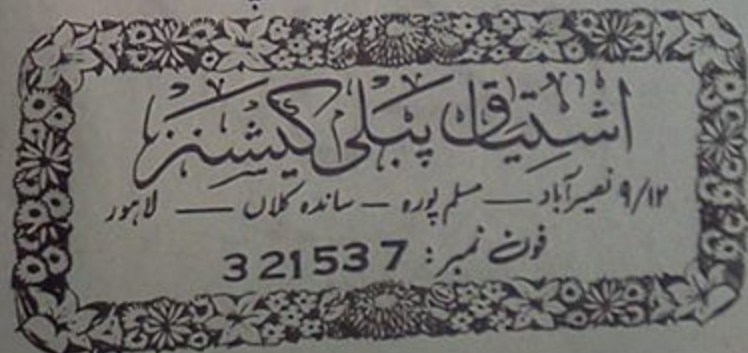 اشتیاق پبلی کیشنز
۹/۱۲ نصیر آباد — مسلم پورہ — ساندہ کلاں — لاہور
فون نمبر: 321537